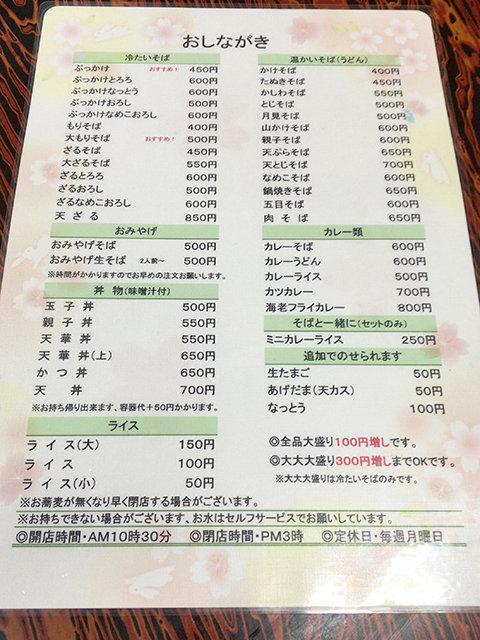 おしながき
冷たいそば
ぶっかけ おすすめ! 450円
ぶっかけとろろ 600円
ぶっかけなっとう 600円
ぶっかけおろし 500円
ぶっかけなめこおろし 600円
もりそば 400円
大もりそば おすすめ! 500円
ざるそば 450円
大ざるそば 550円
ざるとろろ 600円
ざるおろし 500円
ざるなめこおろし 600円
天ざる 850円
おみやげ
おみやげそば 500円
おみやげ生そば 2人前〜 500円
※時間がかかりますのでお早めの注文お願いします。
丼 物(味噌汁付)
玉 子 丼 500円
親 子 丼 550円
天 華 丼 550円
天 華 丼(上) 650円
か つ 丼 650円
天 丼 700円
※お持ち帰り出来ます、容器代+50円かかります。
ライス
ライス(大) 150円
ライス 100円
ライス(小) 50円
温かいそば(うどん)
かけそば 400円
たぬきそば 450円
かしわそば 550円
とじそば 500円
月見そば 500円
山かけそば 600円
親子そば 600円
天ぷらそば 650円
天とじそば 700円
なめこそば 600円
鍋焼きそば 650円
五目そば 600円
肉そば 650円
カレー類
カレーそば 600円
カレーうどん 600円
カレーライス 500円
カツカレー 700円
海老フライカレー 800円
そばと一緒に(セットのみ)
ミニカレーライス 250円
追加でのせられます
生たまご 50円
あげだま(天カス) 50円
なっとう 100円
◎全品大盛り100円増しです。
◎大大大盛り300円増しまでOKです。
※大大大盛りは冷たいそばのみです。
※お蕎麦が無くなり早く閉店する場合がございます。
※お持ちできない場合がございます、お水はセルフサービスでお願いしています。
◎開店時間・AM10時30分 ◎閉店時間・PM3時 ◎定休日・毎週月曜日